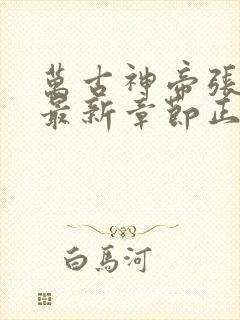 萬古神帝張
最新章節正
白馬河